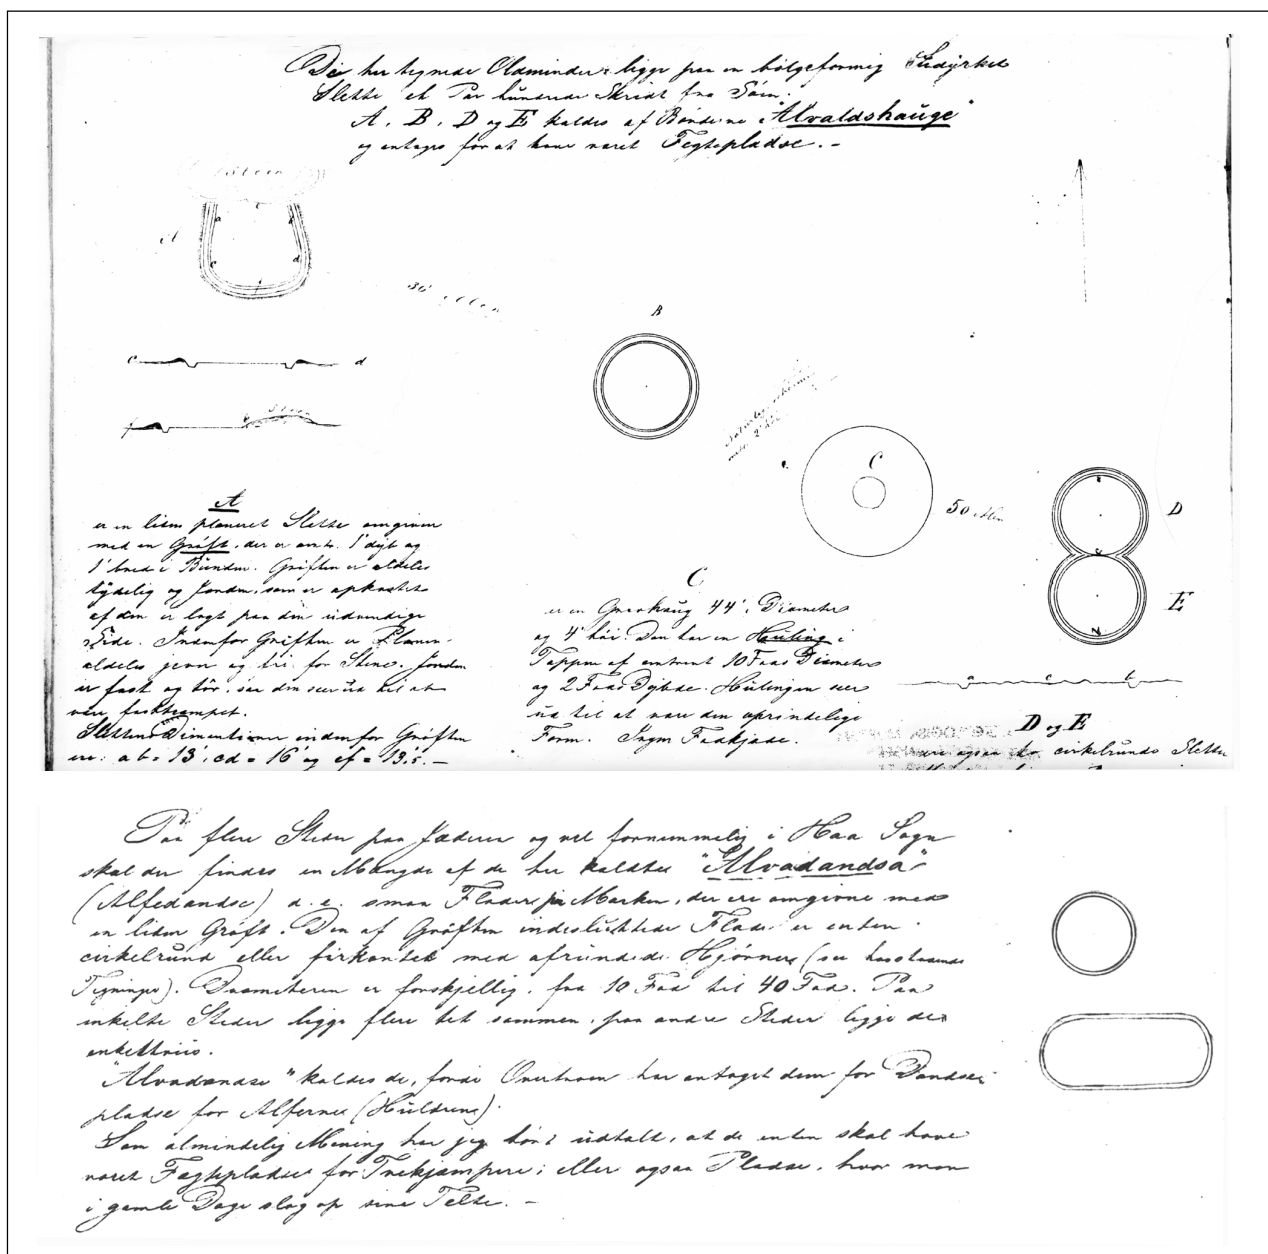 De her tegnede Oldminder ligge paa en bølgeformig Udyrket
Slette et Par hundrede Skridt fra Søen.
A, B, D og E kaldes af Bønderne "Alvaldshauge"
og antages for at have været Fegtepladse. –
Steen
a
b
A
c
d
f
36 Alen
B
c d
Steen
f
C
50 Alen
D
E
A
er en liden planeret Slette omgiven
med en Grøft, der er omtr. 1' dyb og
1' bred i Bunden. Grøften er aldeles
tydelig og Jorden, som er opkastet
af den er lagt paa den udvendige
Side. Indenfor Grøften er Planen
aldeles jevn og fri for Stene. Jorden
er fast og tør, saa den seer ud til at
være fasttrampet.
Slettens Dimentioner indenfor Grøften
ere: ab = 13', cd = 16' og ef = 19',5. –
C
er en Gravhaug 44' i Diameter
og 4' høi. Den har en Huling i
Toppen af omtrent 10 Fods Diameter
og 2 Fods Dybde. Hulingen seer
ud til at være den oprindelige
Form. Ingen Fodkjæde.
D og E
ere ogsaa to cirkelrunde Sletter
Paa flere Steder paa Jæderen og vel fornemmelig i Haa Sogn
skal der findes en Mængde af de her kaldte "Alvadandsa"
(Alfedandse) d. e. smaa Flader paa Marken, der ere omgivne med
en liden Grøft. Den af Grøften indesluttede Flade er enten
cirkelrund eller firkantet med afrundede Hjørner (see hosstaaende
Tegninger). Diameteren er forskjellig, fra 10 Fod til 40 Fod. Paa
enkelte Steder ligge flere tæt sammen, paa andre Steder ligge de
enkeltviis.
"Alvadandse" kaldes de, fordi Overtroen har antaget dem for Dandse-
pladse for Alferne (Huldrene).
Som almindelig Mening har jeg hørt udtalt, at de enten skal have
været Fegtepladse for Tvekjæmpere; eller ogsaa Pladse, hvor man
i gamle Dage slog op sine Telte. –